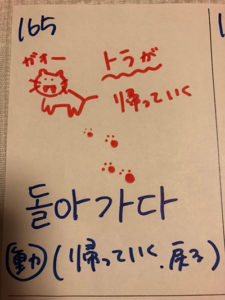 165
ガオー
トラが
帰っていく
돌아가다
動(帰っていく、戻る)